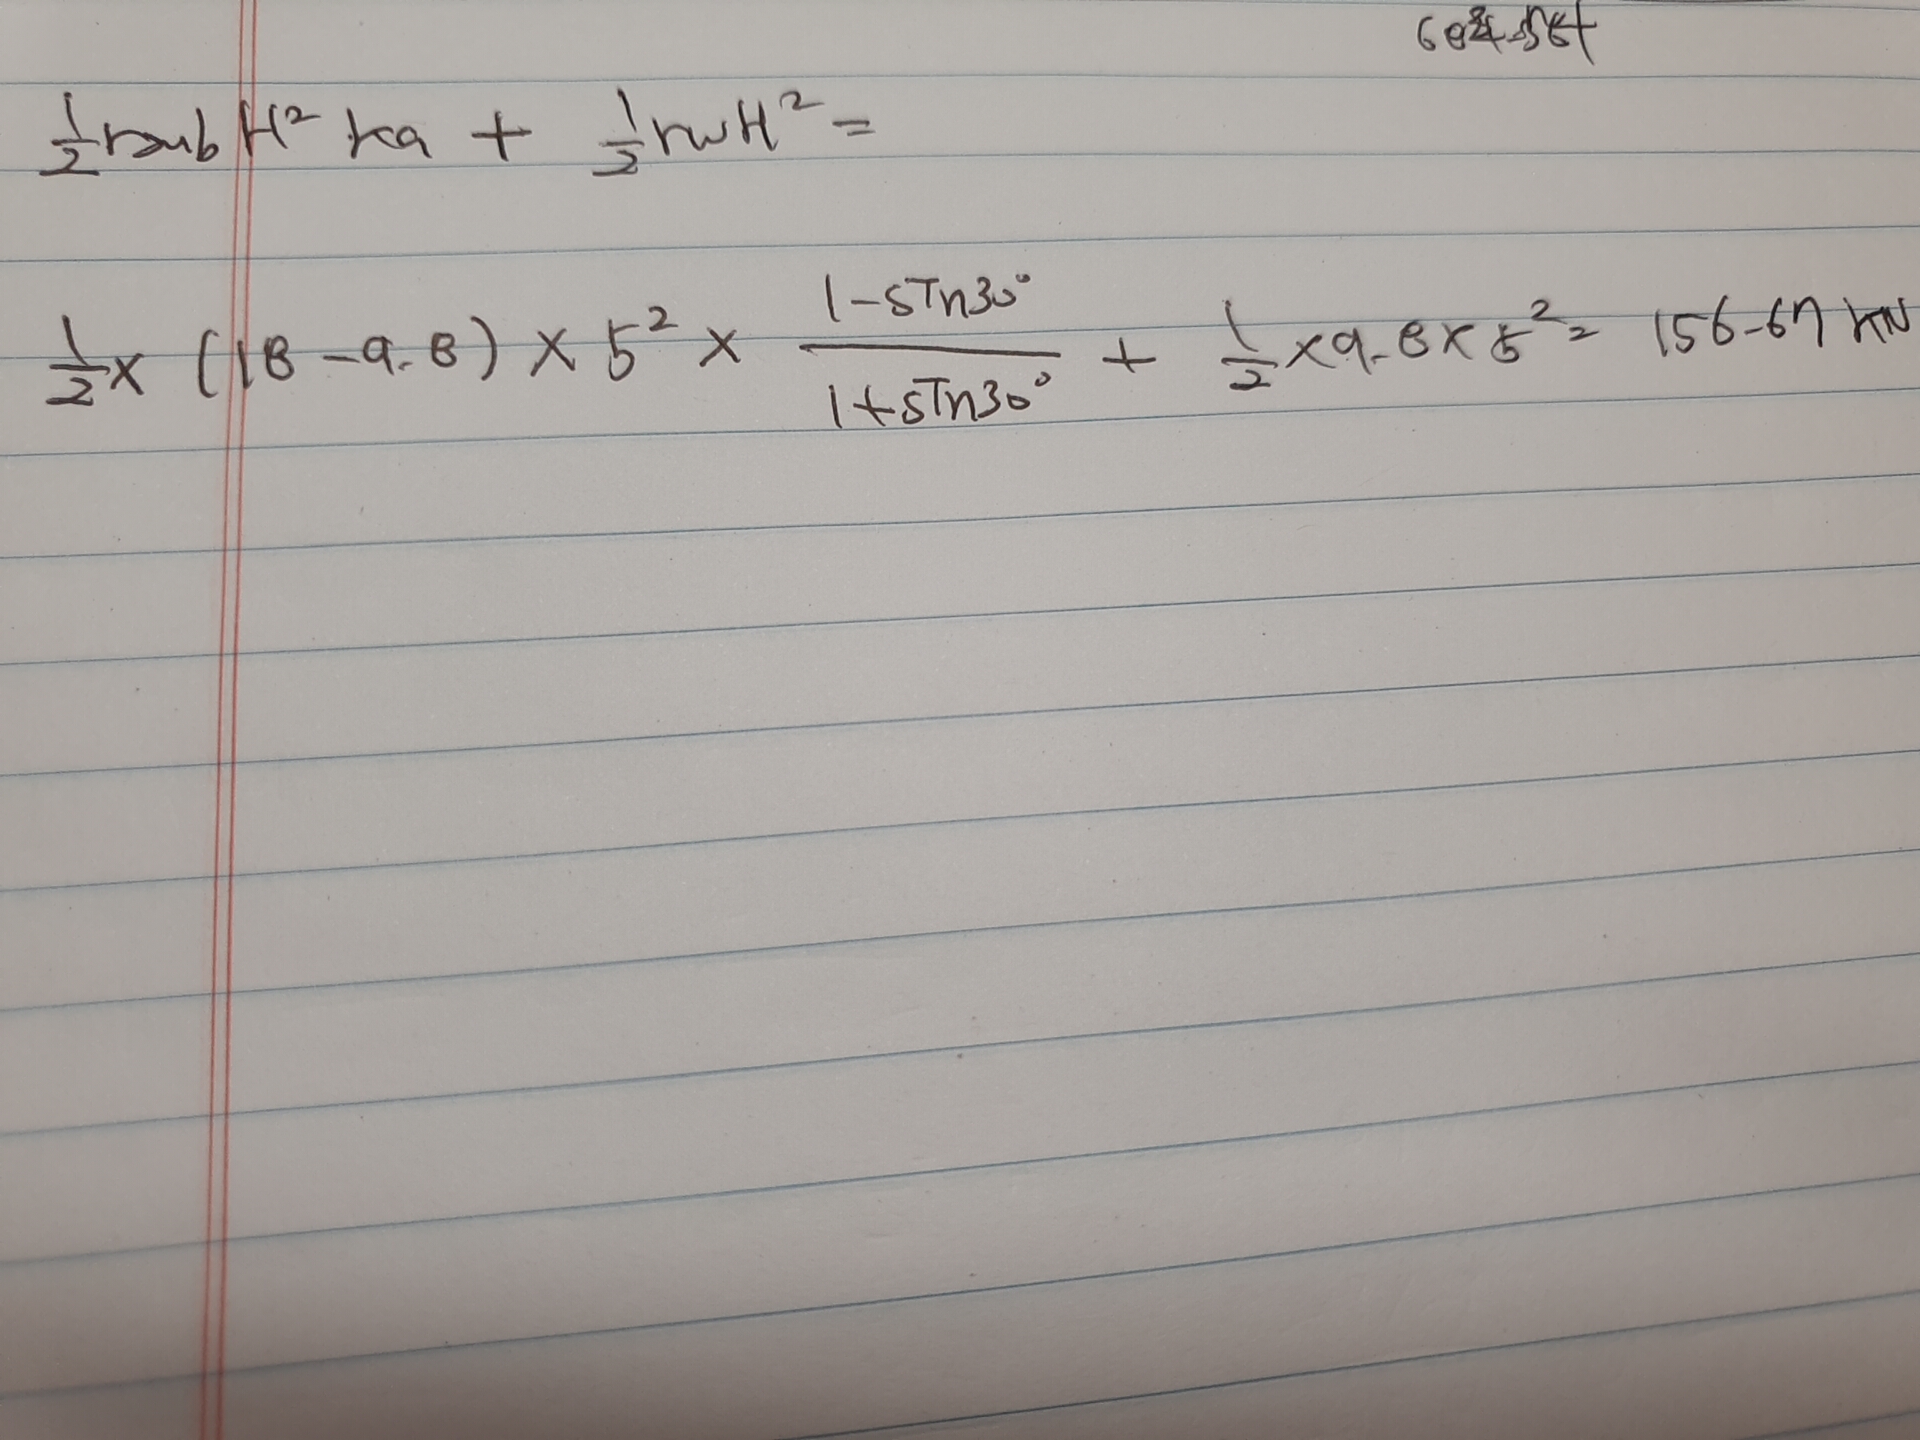 ½rsub H² ka + ½rwH² =
½ × (18 - 9.8) × 5² × (1-sin30°)/(1+sin30°) + ½ × 9.8 × 5² = 156.67 kN